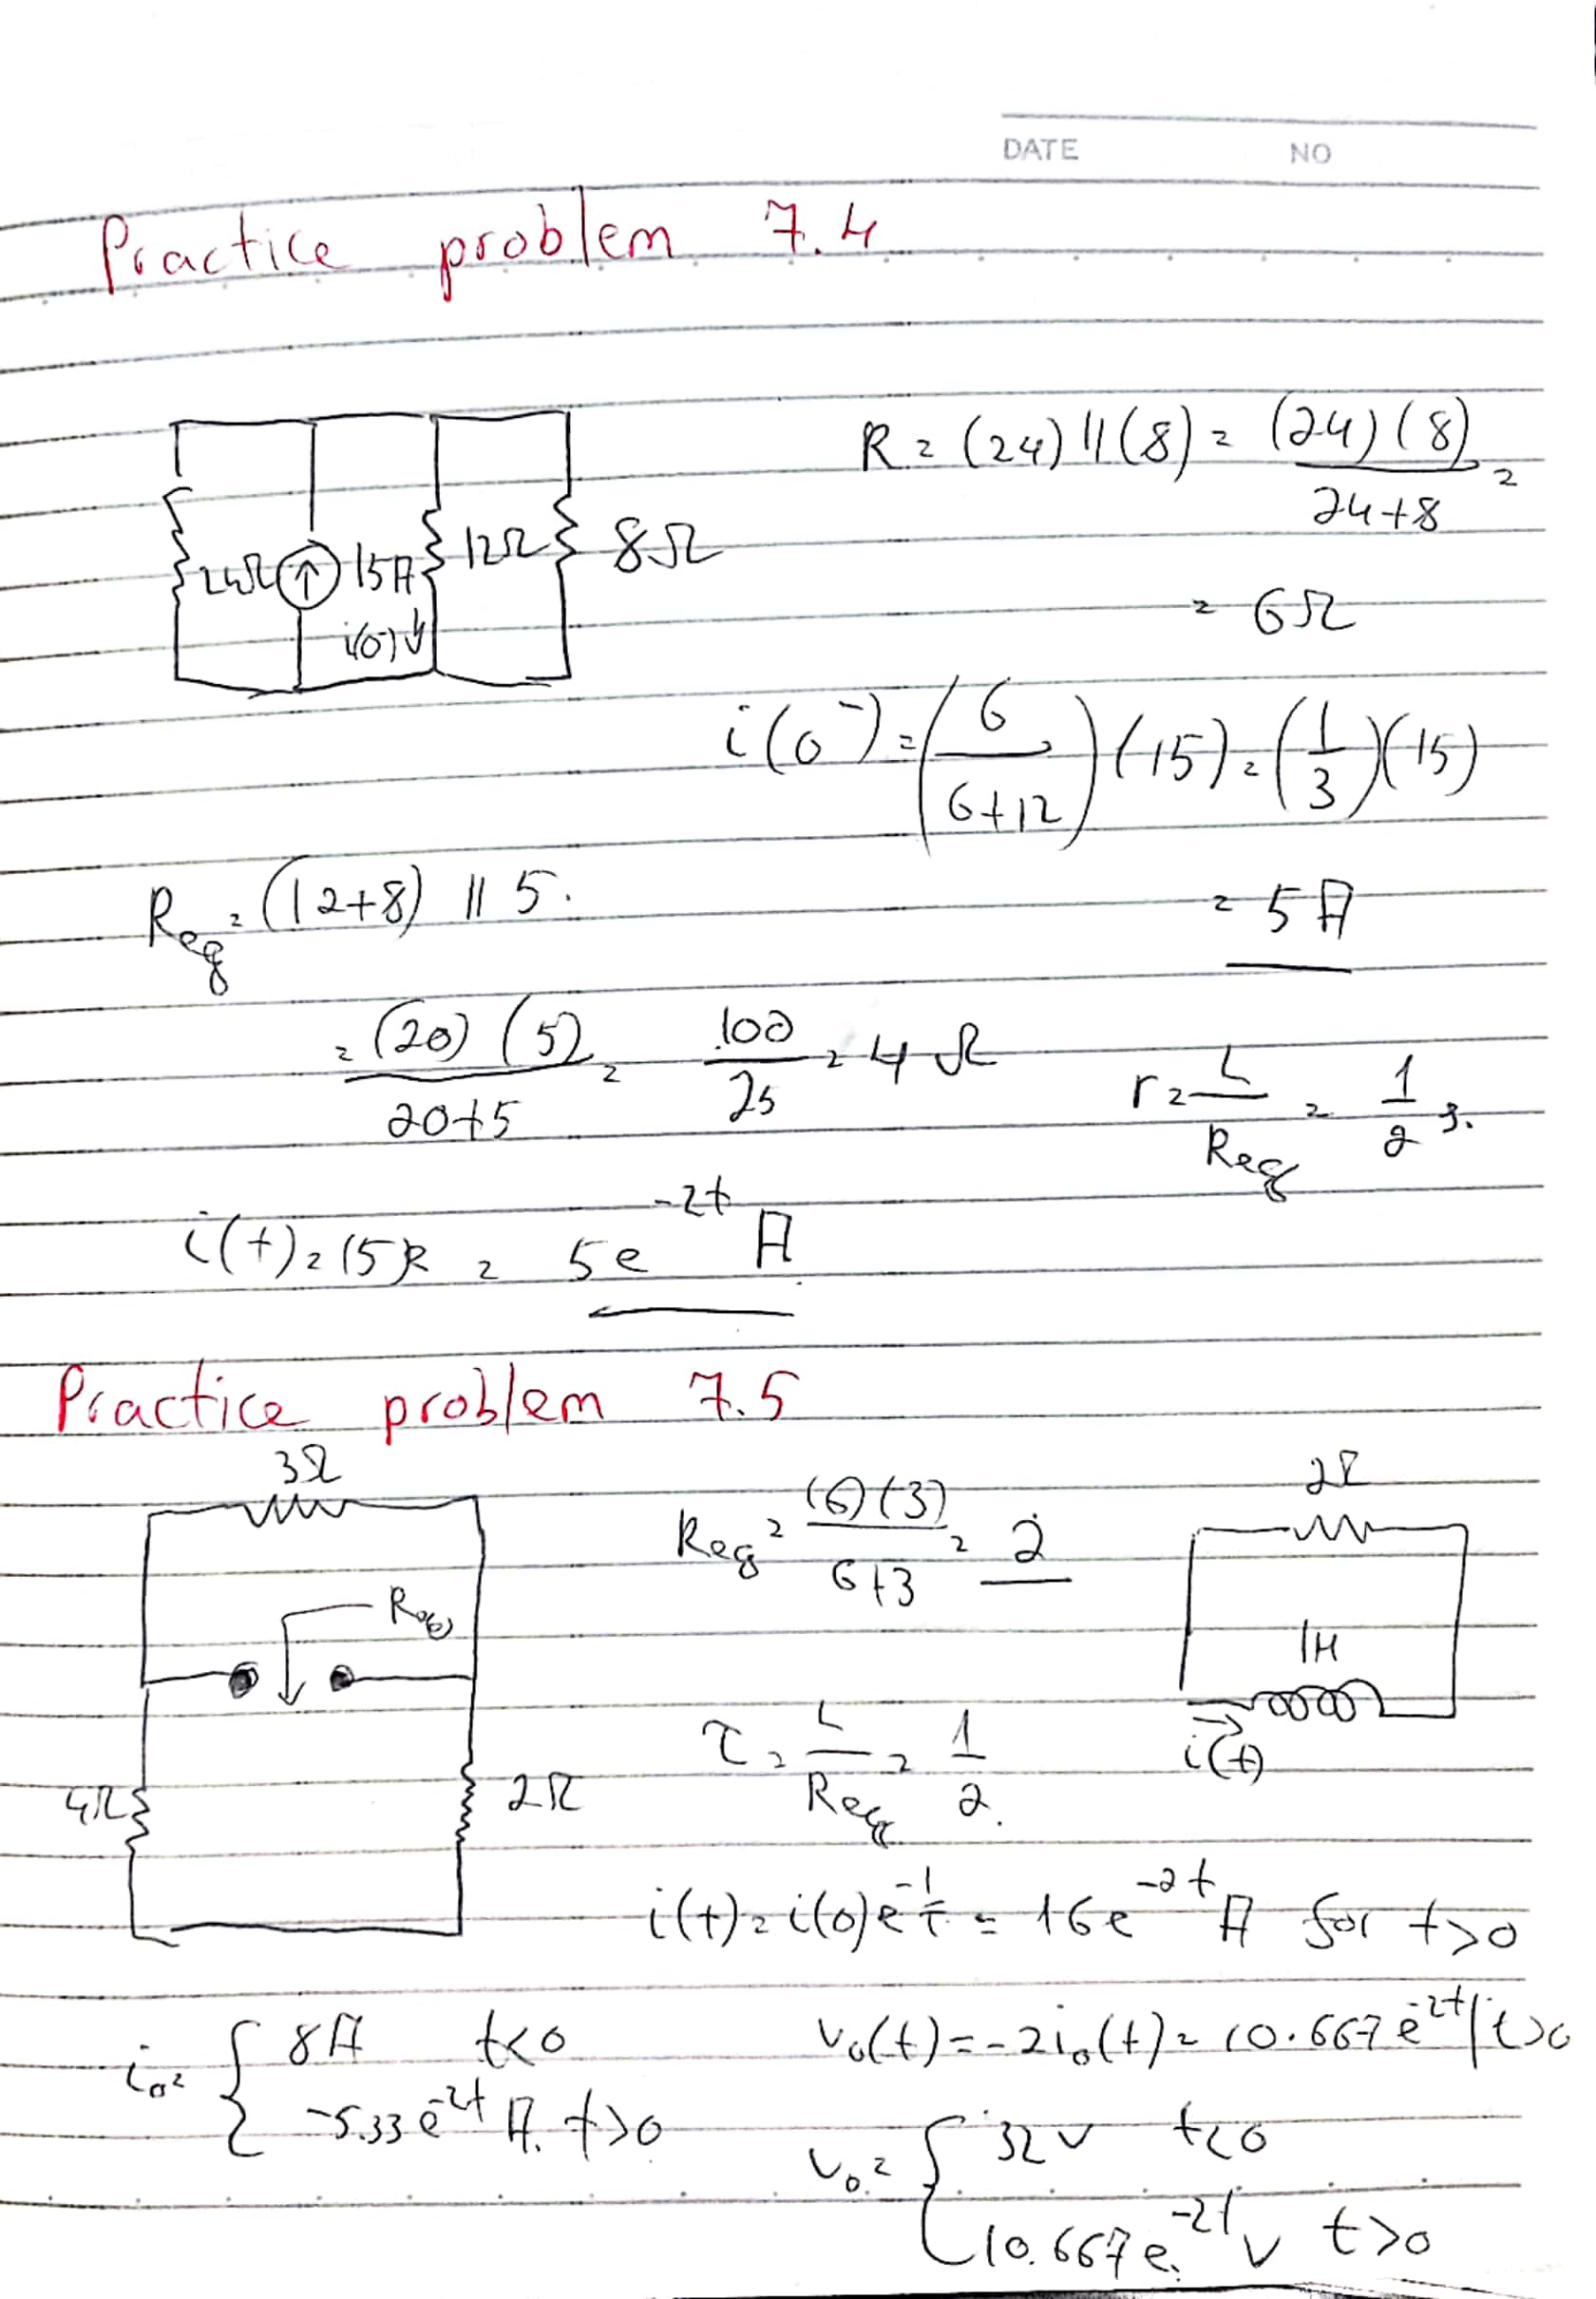 DATE NO
Practice problem 7.4
24Ω 15A 12Ω 8Ω
i(0⁻)
R = (24) || (8) = (24)(8) / 24+8 =
= 6Ω
i(0⁻) = (6 / 6+12) (15) = (1/3)(15)
= 5A
Req = (12+8) || 5.
= (20)(5) / 20+5 = 100 / 25 = 4Ω
τ = L / Req = 1/2 s.
i(t) = 5e^-2t A
Practice problem 7.5
3Ω
Req
4Ω
2Ω
Req = (6)(3) / 6+3 = 2
2Ω
1H
i(t)
τ = L / Req = 1/2.
i(t) = i(0)e^-t/τ = 16e^-2t A for t>0
i₀ = { 8A t<0
-5.33e^-2t A. t>0
v₀(t) = -2i₀(t) = 10.667e^-2t | t>0
v₀ = { 32V t<0
10.667e^-2t V t>0